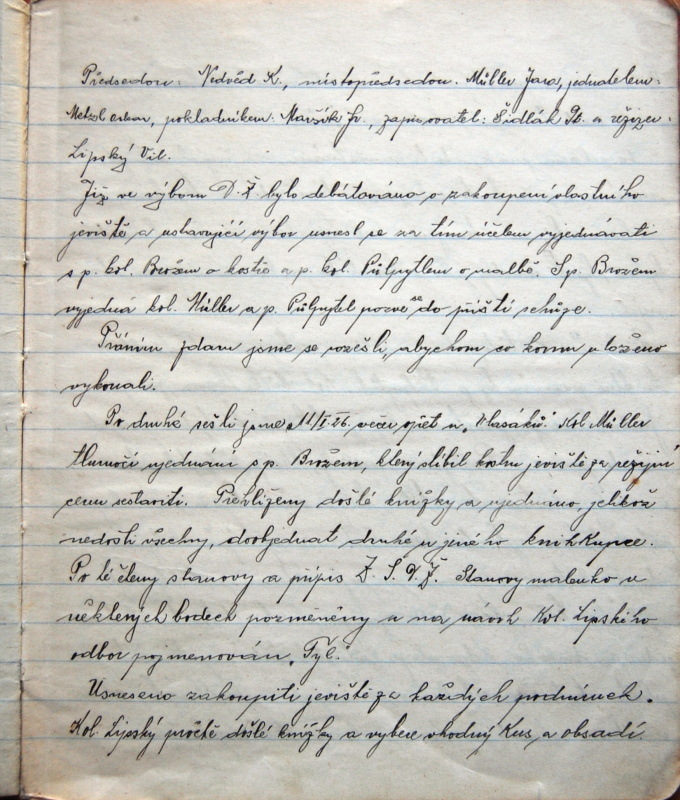 Předsedou: Nedvěd K., místopředsedou: Müller Jara, jednatelem:
pokladníkem: Maršík Jr., zapisovatel: Šidlák a režizer:
Lipský Vil.
Již ve výboru D.T. bylo debatováno o zakoupení vlastního
jeviště a ustavující výbor usnesl se za tím účelem vyjednávati
s p. kol. Brožem o kostře a p. kol. Půlpytlem o malbě. S p. Brožem
vyjedná kol. Müller a p. Půlpytel pozve se do příští schůze.
Přáním zdaru jsme se rozešli, abychom co komu uloženo
vykonali.
Po druhé sešli jsme 11/I. 26. večer opět u „Vlasáků". Kol. Müller
tlumočí ujednání s p. Brožem, který slíbil kostru jeviště za režijní
cenu sestaviti. Prohlíženy došlé knížky a ujednáno, jelikož
nedošli všechny, doobjednat druhé u jiného knihkupce.
Po té čteny stanovy a přípis Stanovy malenko v
některých bodech pozměněny a na návrh Kol. Lipského
odbor pojmenován „Tyl."
Usneseno zakoupiti jeviště za každých podmínek.
Kol. Lipský pročte došlé knížky a vybere vhodný kus, a obsadí.